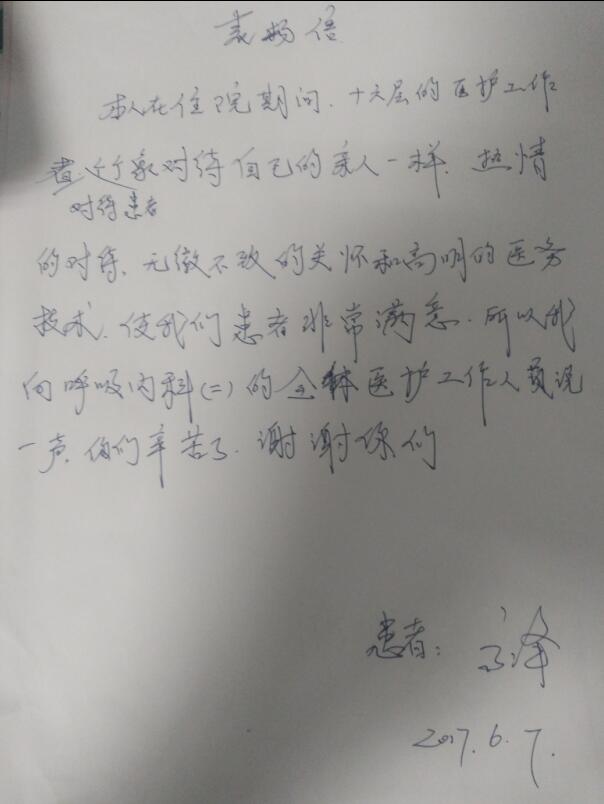 表扬信
本人在住院期间.十六层的医护工作
者个个象对待自己的亲人一样.热情
对待患者
的对待、无微不致的关怀和高明的医务
技术.使我们患者非常满意.所以我
向呼吸内科(二)的全体医护工作人员说
一声.你们辛苦了.谢谢你们
患者:
2017.6.7.